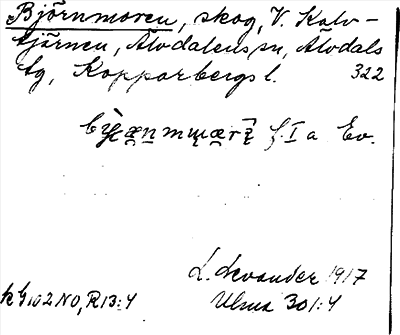 Björnmoren, skog, V. Kalv-
tjärnen, Älvdalens sn, Älvdals
tg, Kopparbergs l. 322
f. I a Ev.
L. Levander 1917
Ulma 301:4
k G102 NO, R13:4